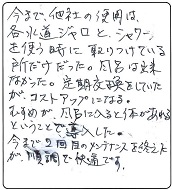 今まで、他社の使用は、
各水道ジャロと、シャワー
を使う時に取りつけている
所だけだった。風呂は出来
なかった。定期交換をしていた
が、コストアップになる。
むすめが、風呂に入ると体があれる
ということで導入した。
今まで2回目のメンテナンスを終えた
が、順調で快適です。